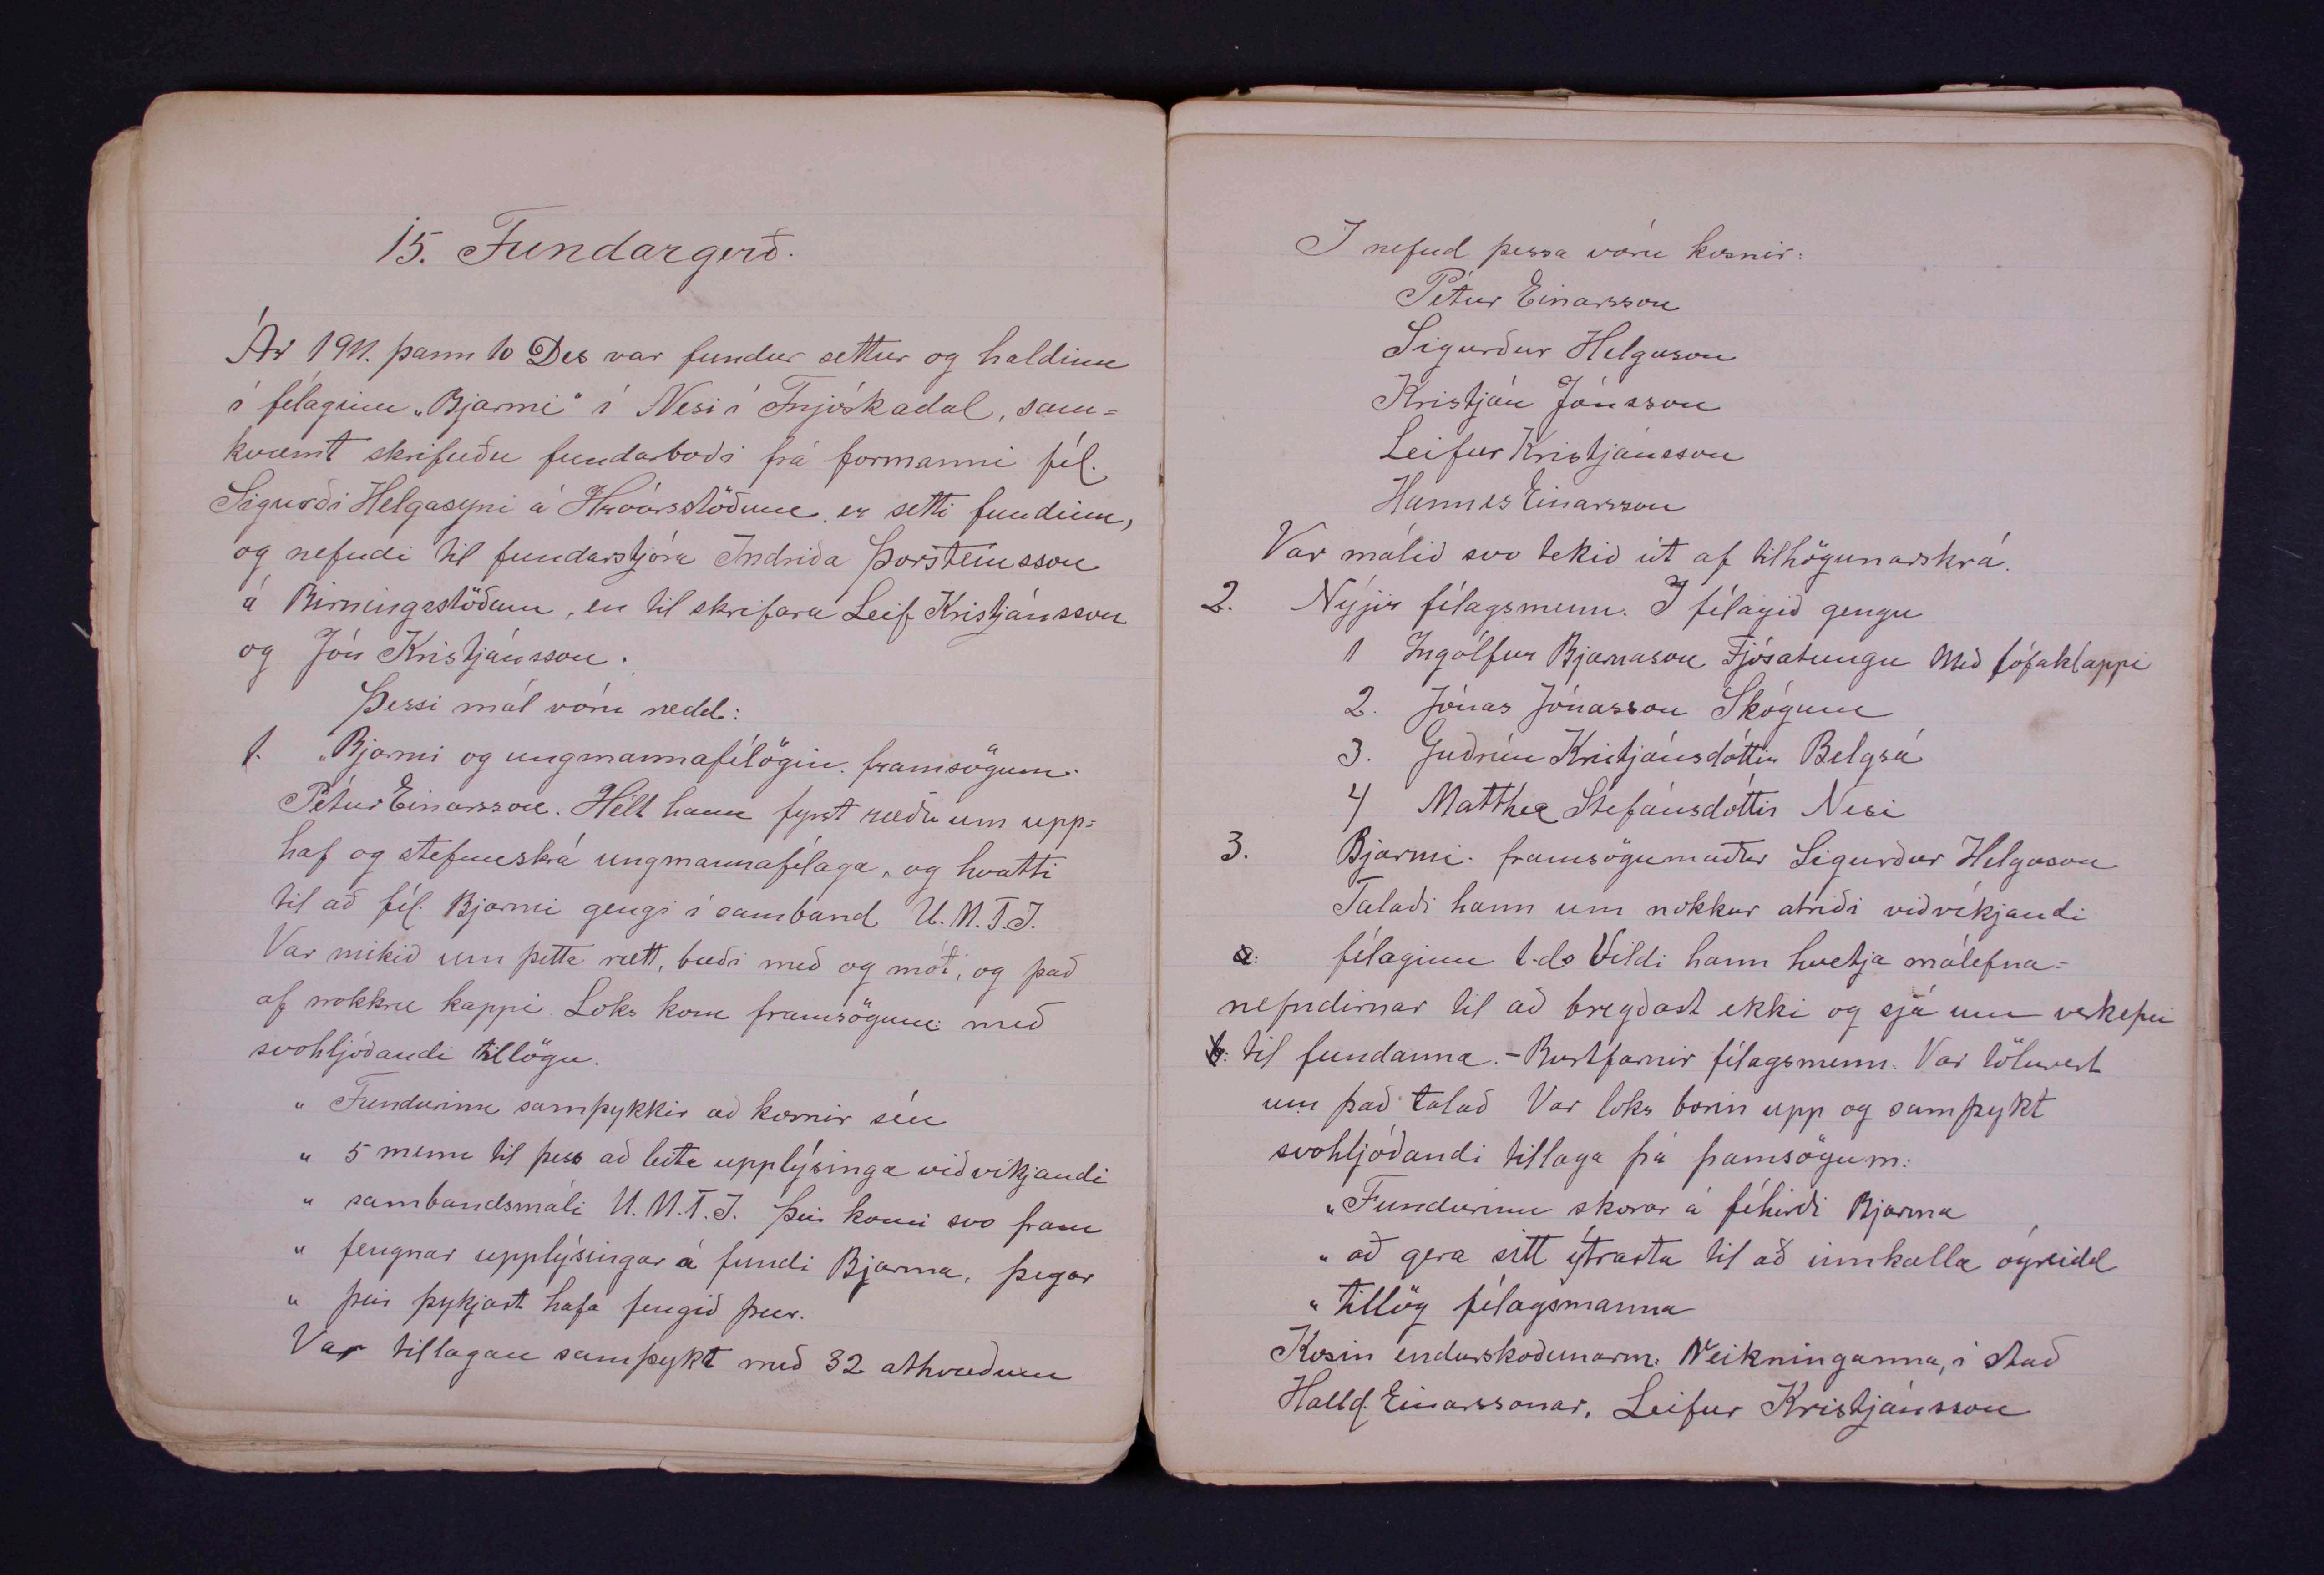 15. Fundargerð.
Ár 1911. þann 10 Des var fundur settur og haldinn
í félaginu „Bjarmi“ í Nesi í Fnjóskadal, sam=
kvæmt skrifuðu fundarboði frá formanni fél.
Sigurði Helgasyni á Hróarsstöðum er setti fundinn,
og nefndi til fundarstjóra Indriða Þorsteinsson
á Birningsstöðum, en til skrifara Leif Kristjánsson
og Jón Kristjánsson.
Þessi mál vóru rædd:
1. „Bjarmi og ungmannafélögin. framsögum.
Pétur Einarsson. Hélt hann fyrst ræðu um upp=
haf og stefnuskrá ungmannafélaga, og hvatti
til að fél. Bjarmi gengi í samband U.M.F.Í.
Var mikið um þetta rætt, bæði með og móti, og það
af nokkru kappi. Loks kom framsögum: með
svohljóðandi tillögu.
„ Fundurinn samþykkir að kosnir séu
„ 5 menn til þess að leita upplýsinga viðvíkjandi
„ sambandsmáli U.M.F.Í. Þeir komi svo fram
„ fengnar upplýsingar á fundi Bjarma, þegar
„ þeir þykjast hafa fengið þær.
Var tillagan samþykt með 32 athvæðum
I nefnd þessa vóru kosnir:
Pétur Einarsson
Sigurður Helgason
Kristján Jónsson
Leifur Kristjánsson
Hannes Einarsson
Var málið svo tekið út af tilhögunarskrá.
2. Nýjir félagsmenn. I félagið gengu
1 Ingólfur Bjarnason Fjósatungu Með lófaklappi
2. Jónas Jónasson Skógum
3. Guðrún Kristjánsdóttir Belgsá
4 Matthea Stefánsdóttir Nesi
3. Bjarmi. framsögumaður Sigurður Helgason
Talaði hann um nokkur atriði viðvíkjandi
a: félaginu t.d. Vildi hann hvetja málefna=
nefndirnar til að bregðast ekki og sjá um verkefni
b: til fundanna. - Burtfarnir félagsmenn. Var töluvert
um það talað Var loks borin upp og samþykt
svohljóðandi tillaga frá framsögum:
„Fundurinn skorar á féhirði Bjarma
„ að gera sitt ýtrasta til að innkalla ógreidd
„ tillög félagsmanna
Kosin endurskoðunarm: Reikninganna, í stað
Halld. Einarssonar, Leifur Kristjánsson